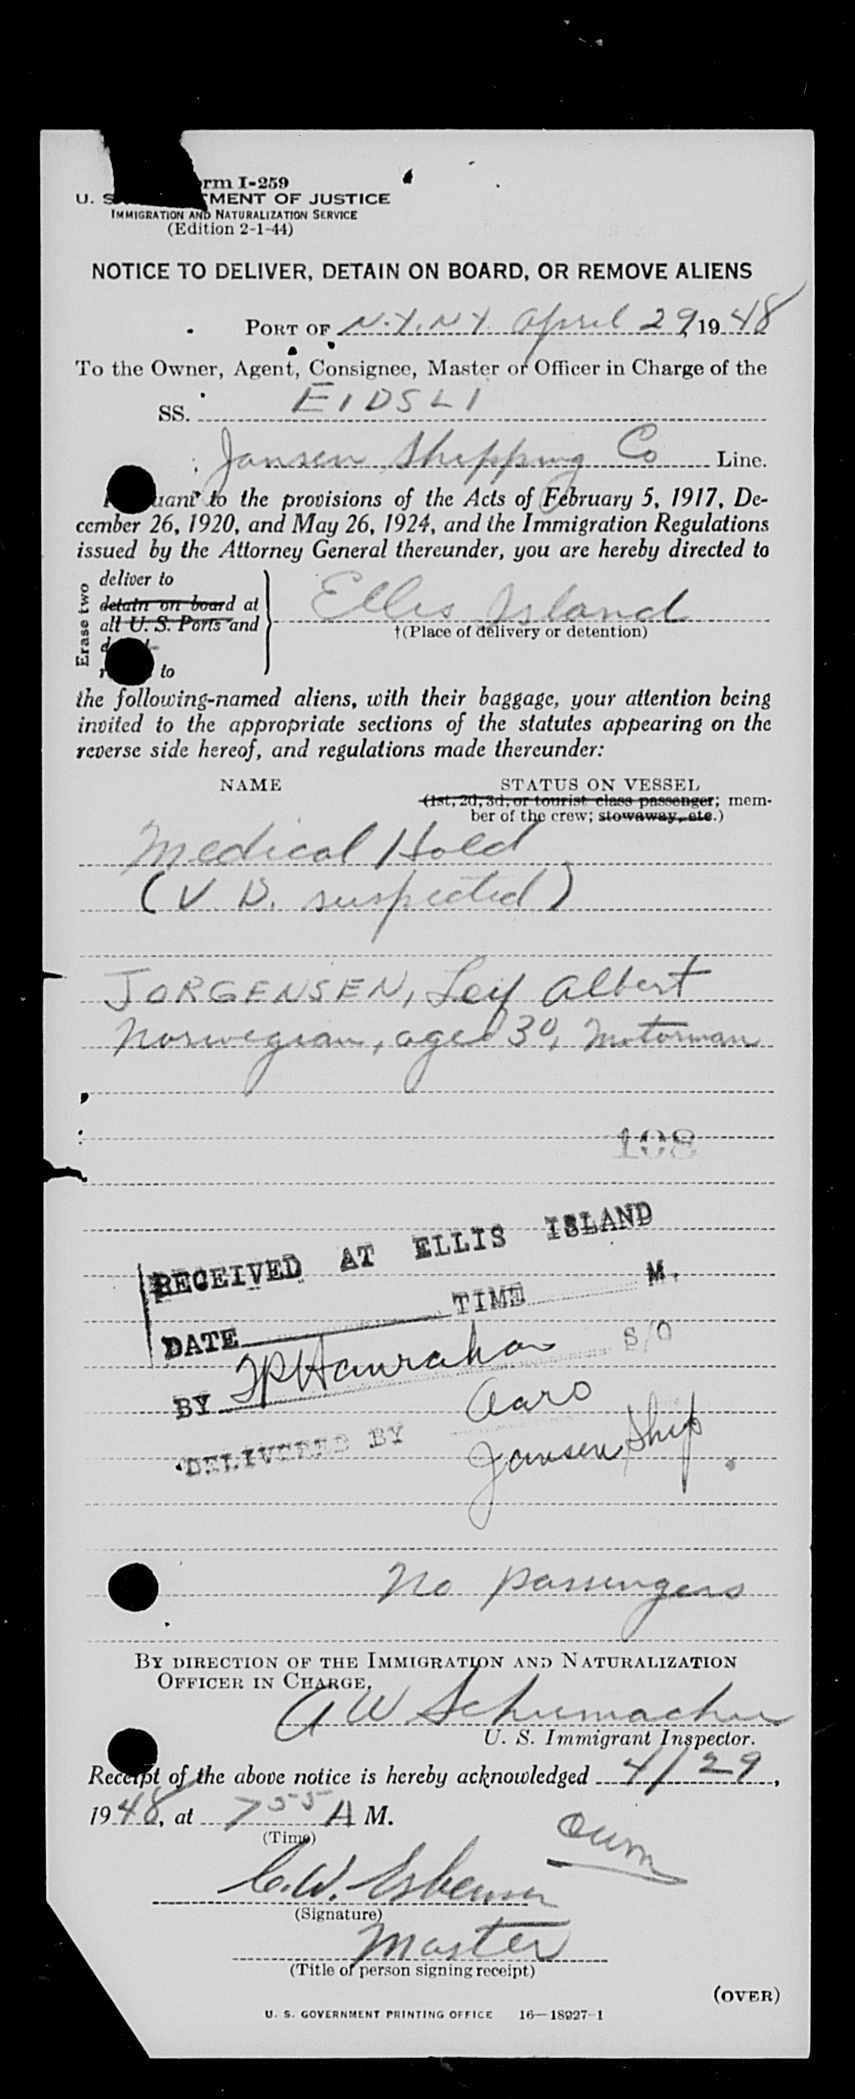 rm I-259
U. S. MENT OF JUSTICE
IMMIGRATION AND NATURALIZATION SERVICE
(Edition 2-1-44)
NOTICE TO DELIVER, DETAIN ON BOARD, OR REMOVE ALIENS
PORT OF N.Y. N Y. April 29, 1948
To the Owner, Agent, Consignee, Master or Officer in Charge of the
SS. EIDSLI
Jansen Shipping Co Line.
uant to the provisions of the Acts of February 5, 1917, De-
cember 26, 1920, and May 26, 1924, and the Immigration Regulations
issued by the Attorney General thereunder, you are hereby directed to
Erase two
deliver to
detain on board at
all U. S. Ports and
to
Ellis Island
†(Place of delivery or detention)
the following-named aliens, with their baggage, your attention being
invited to the appropriate sections of the statutes appearing on the
reverse side hereof, and regulations made thereunder:
NAME STATUS ON VESSEL
(1st, 2d, 3d, or tourist class passenger; mem-
ber of the crew; stowaway, etc.)
Medical Hold
(V D. suspected)
JORGENSEN, Leif Albert
Norwegian, aged 30, Motorman
108
RECEIVED AT ELLIS ISLAND
DATE TIME M.
BY Hanrahan S/O
DELIVERED BY Aaro
Jansen Ship
No passengers
BY DIRECTION OF THE IMMIGRATION AND NATURALIZATION
OFFICER IN CHARGE.
A W Schumacher
U. S. Immigrant Inspector.
Receipt of the above notice is hereby acknowledged 4/29,
1948, at 7 55 A M.
(Time)
C.W.
(Signature)
Master
(Title of person signing receipt)
(OVER)
U. S. GOVERNMENT PRINTING OFFICE 16—18927-1